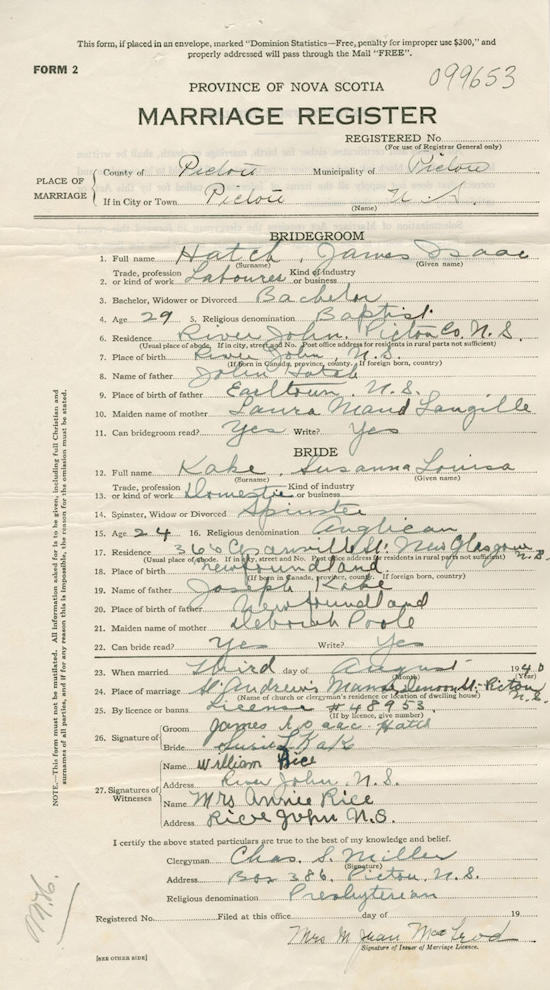 This form, if placed in an envelope, marked "Dominion Statistics—Free, penalty for improper use $300," and
properly addressed will pass through the Mail "FREE".
FORM 2
099653
PROVINCE OF NOVA SCOTIA
MARRIAGE REGISTER
REGISTERED No.
(For use of Registrar General only)
PLACE OF MARRIAGE
County of Pictou Municipality of Pictou
If in City or Town Pictou N.S.
(Name)
BRIDEGROOM
1. Full name Hatch, James Isaac
(Surname) (Given name)
2. Trade, profession or kind of work Labourer Kind of industry or business
3. Bachelor, Widower or Divorced Bachelor
4. Age 29 5. Religious denomination Baptist
6. Residence River John, Pictou Co. N.S.
(Usual place of abode. If in city, street and No. Post office address for residents in rural parts not sufficient)
7. Place of birth River John, N.S.
(If born in Canada, province, county. If foreign born, country)
8. Name of father John Hatch
9. Place of birth of father Earltown, N.S.
10. Maiden name of mother Laura Maud Langille
11. Can bridegroom read? Yes Write? Yes
BRIDE
12. Full name Kake, Susanna Louisa
(Surname) (Given name)
13. Trade, profession or kind of work Domestic Kind of industry or business
14. Spinster, Widow or Divorced Spinster
15. Age 24 16. Religious denomination Anglican
17. Residence 366 St. New Glasgow N.S.
(Usual place of abode. If in city, street and No. Post office address for residents in rural parts not sufficient)
18. Place of birth Newfoundland
(If born in Canada, province, county. If foreign born, country)
19. Name of father Joseph Kake
20. Place of birth of father Newfoundland
21. Maiden name of mother Deborah Poole
22. Can bride read? Yes Write? Yes
23. When married Third day of August 1940
(Month) (Year)
24. Place of marriage St. Andrew's Manse Pictou N.S.
(Name of church or clergyman's residence or location of dwelling house)
25. By licence or banns License #48953
(If by licence, give number)
26. Signature of
Groom James Isaac Hatch
Bride Susie L Kake
27. Signatures of Witnesses
Name William Rice
Address River John, N.S.
Name Mrs Annie Rice
Address River John N.S.
I certify the above stated particulars are true to the best of my knowledge and belief.
Clergyman Chas. S. Miller
(Signature)
Address Box 386, Pictou, N.S.
Religious denomination Presbyterian
Registered No. Filed at this office day of 19
Mrs M Jean MacLeod
Signature of Issuer of Marriage Licence.
[SEE OTHER SIDE]
NOTE.—This form must not be mutilated. All information asked for is to be given, including full Christian and
surnames of all parties, and if for any reason this is impossible, the reason for the omission must be stated.